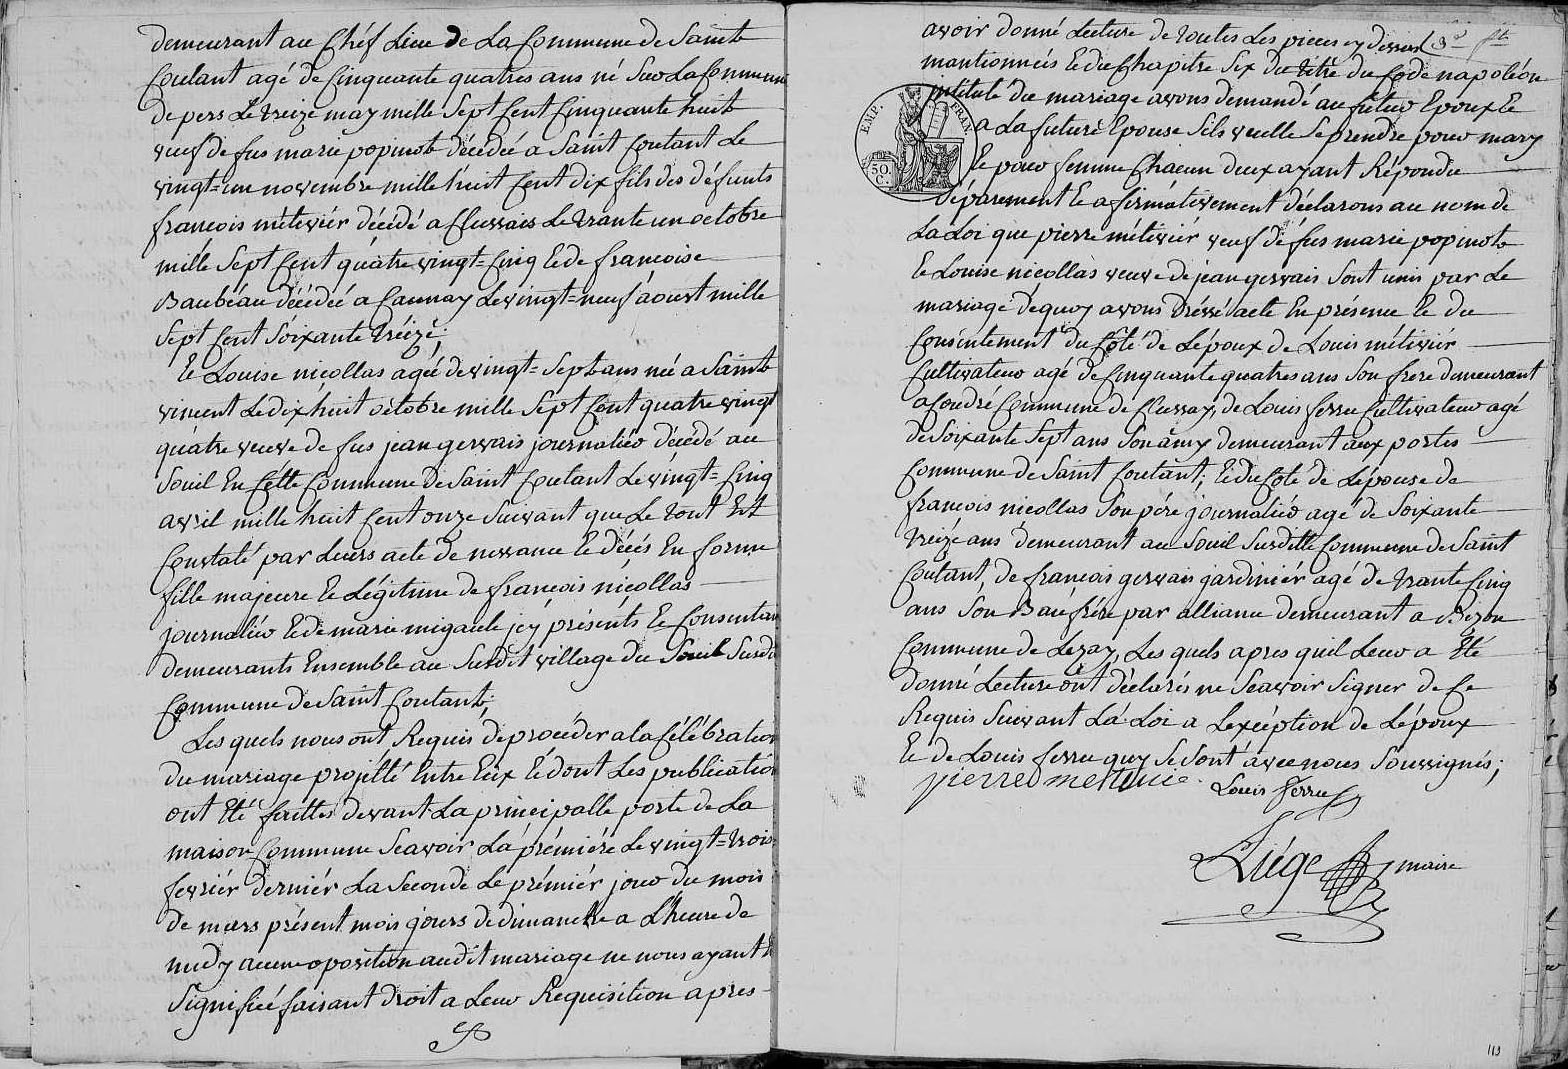 demeurant au Chéf Lieu de La Commune de Saint
Coutant agé de Cinquante quatres ans né Sur La Commune
de pers Le treize may mille Sept Cent Cinquante huit
veuf de fus marie popinot décédée a Saint Coutant Le
vingt=un novembre mille huit Cent dix fils des défunts
françois métivier décédé a Clussais Le trante un octobre
mille Sept Cent quatre vingt=Cinq Et de françoise
Baubéau décédée a Caunay Le vingt=neuf àoust mille
Sept Cent Soixante treize;
Et Louise nicollas agée de vingt=Sept ans née a Saint
vincent Le dix huit octobre mille Sept Cent quatre vingt
quatre veuve de fus jean gervais journaliér décédé au
Souil En Cette Commune de Saint Coutant Le vingt=Cinq
avril mille huit Cent onze Suivant que Le tout Est
Constaté par Leurs acte de nessance Et décés En forme
fille majeure Et Légitime de françois nicollas
journaliér Et de marie migault jcy présénts Et Consentan
demeurants Ensemble au Susdit village du Souil Susdi
Commune de Saint Coutant;
Les quels nous ont Requis de procéder a la Célébration
du mariage projétté Entre Eux Et dont Les publication
ont Eté faittes devant La principalle porte de La
maison Commune Seavoir La prémiére Le vingt=trois
fevriér derniér La Seconde Le prémiér jour du mois
de mars présent mois jours de dimanche a L'heure de
midy aucune oposition audit mariage ne nous ayant E
Signifiée faisant Droit a Leur Requisition apres
avoir donné Lecture de toutes Les pieces cy dessus
mantionnées Et du Chapitre Six du titre du Code napoléon
jntitulé du mariage avons demandé au futur Epoux Et
a La future Epouse Sils veulle Se prendre pour mary
Et pour femme Chacun deux ayant Répondu
Séparement Et afirmativement déclarons au nom de
La Loi que pierre métivier veuf de fus marie popinot
Et Louise nicollas veuve de jean gervais Sont unis par Le
mariage déquoy avons dréssé acte En présence Et du
Consentement du Côté de Lépoux de Louis métiviér
Cultivateur agé de Cinquante quatres ans Son frere demeurant
a Coudré Commune de Clussay, de Louis ferru Cultivateur agé
de Soixante Sept ans Son amy demeurant aux portes
Commune de Saint Coutant; Et du Coté de Lépouse de
françois nicollas Son pére journaliér agé de Soixante
treize ans demeurant au Souil Susditte Commune de Saint
Coutant, de françois gervais jardiniér agé de trante Cinq
ans Son Bau frére par alliance demeurant a
Commune de Lezay, Les quels apres quil Leur a Eté
donné Lecture ont déclarés ne Seavoir Signer de Ce
Requis Suivant La Loi a Lexcéption de Lépoux
Et de Louis ferru quy Se Sont avec nous Soussignés;
pierre metivie Louis ferru
Liége maire
EMP. FRAN.
50.
C.
113